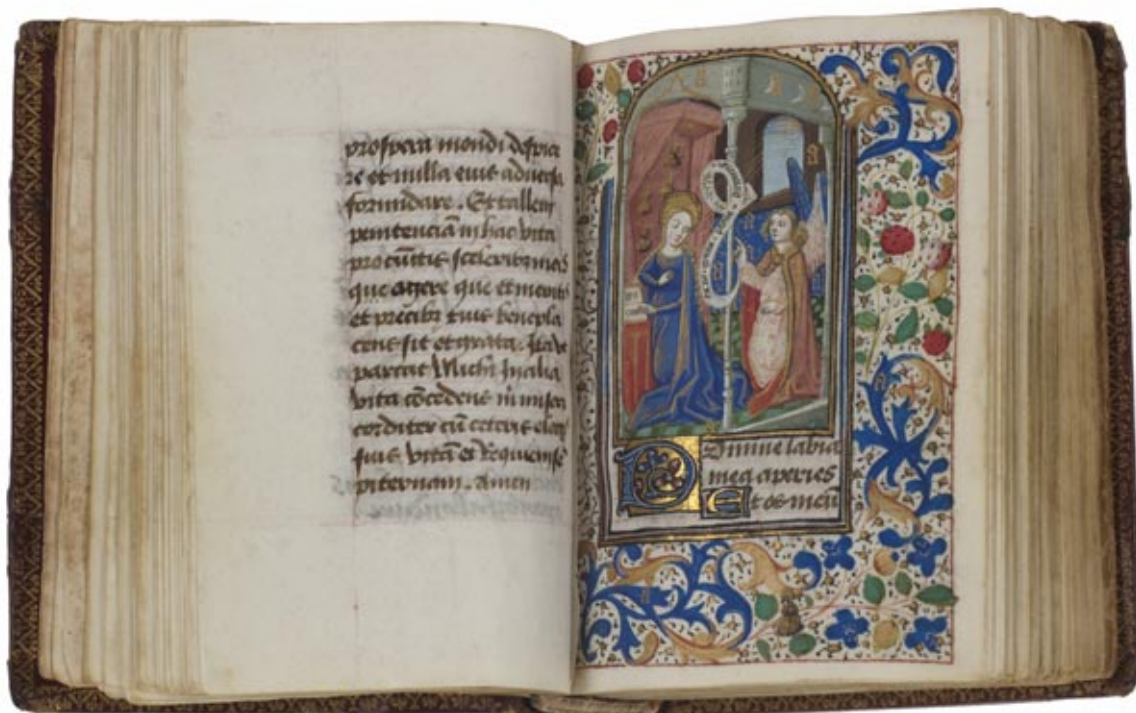 prospera mondi despice
re et nulla eius aduersa
formidare. Et tallem
penitenciã in hac vita
pro cũttis sceleribz meis
que agere que et meritis
et precibz tuis benepla
cens sit et grata.
Michi In alia
vita cõcedens
corditer cũ ceteris
suis vitã et Requiem se
piternam. Amen
Domine labia
mea aperies
Et os meũ